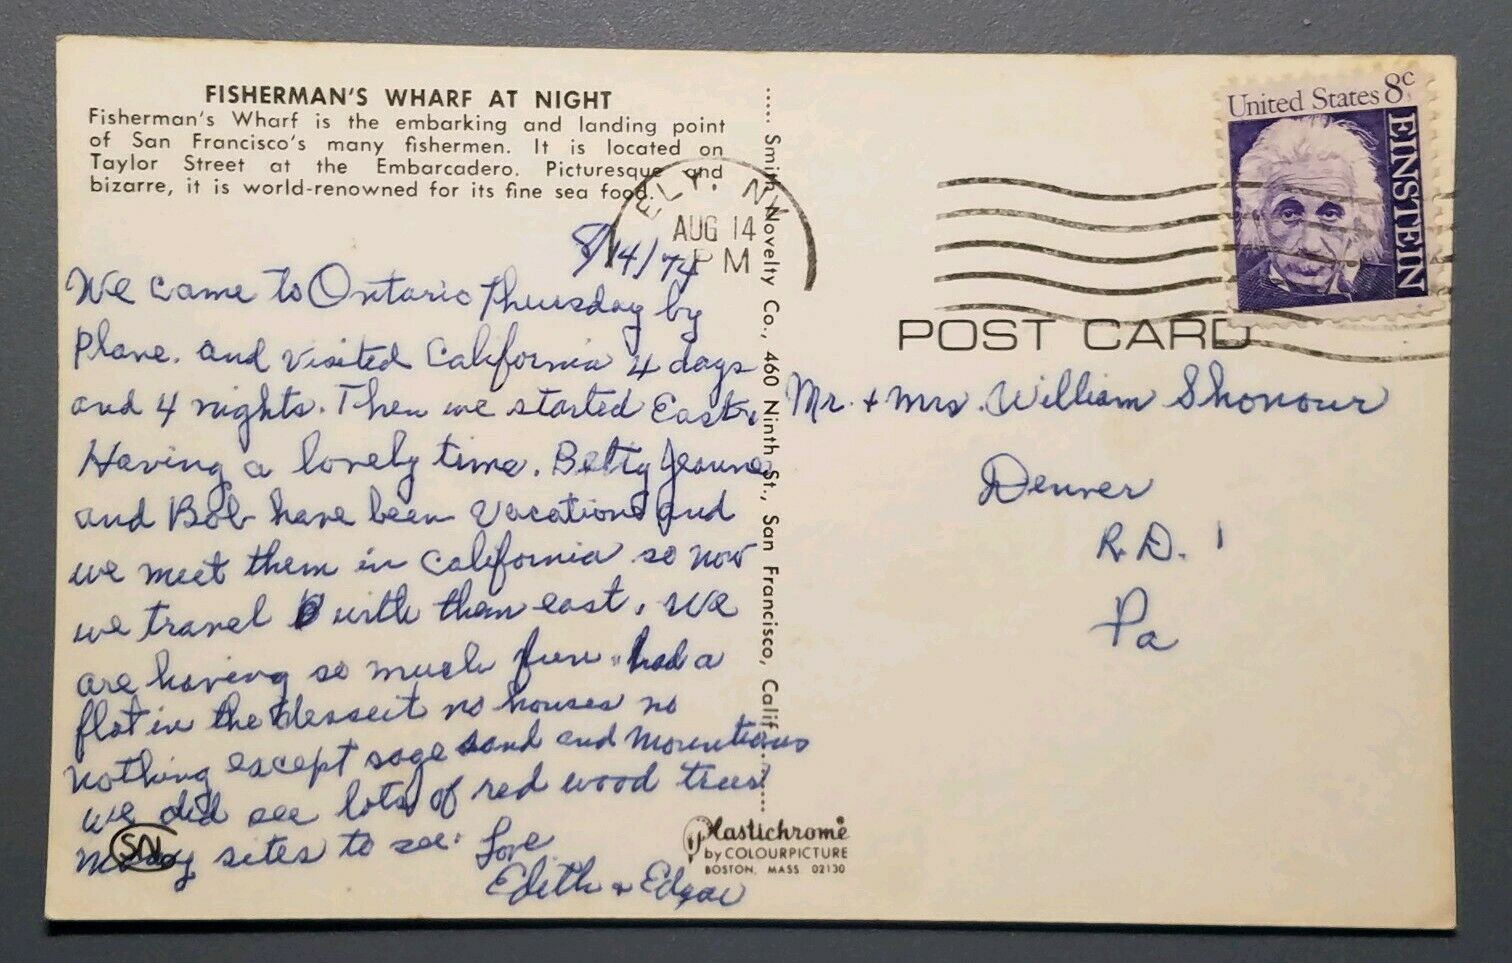 FISHERMAN'S WHARF AT NIGHT
Fisherman's Wharf is the embarking and landing point
of San Francisco's many fishermen. It is located on
Taylor Street at the Embarcadero. Picturesque and
bizarre, it is world-renowned for its fine sea food.
8/14/74
We came to Ontario Thursday by
plane. and visited California 4 days
and 4 nights. Then we started East.
Having a lovely time. Betty Jeanne
and Bob have been vacation and
we meet them in California so now
we travel with them east. We
are having so much fun. had a
flat in the dessert no houses no
nothing except sage sand and mountians
we did see lots of red wood trees
Many sites to see. Love
Edith & Edgar
SN
..... Smith Novelty Co., 460 Ninth St., San Francisco, Calif. .....
ELY, N
AUG 14
PM
United States 8c
EINSTEIN
POST CARD
Mr. & Mrs. William Shonour
Denver
R.D. 1
Pa
Plastichrome®
by COLOURPICTURE
BOSTON, MASS. 02130